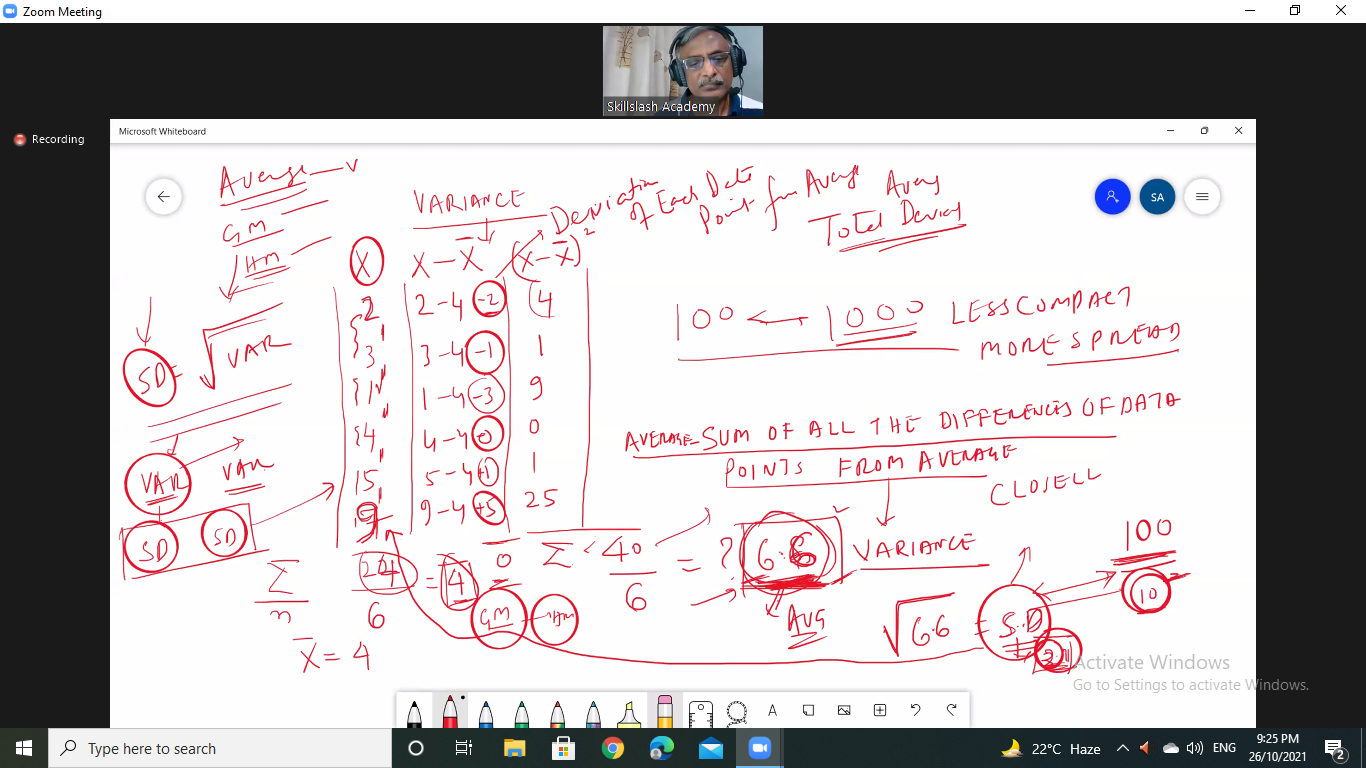 Zoom Meeting
Skillslash Academy
Recording
Microsoft Whiteboard
SA
Average
GM
HM
SD = √VAR
VAR VAR
SD SD
VARIANCE
Deviation of Each Data
Point from Average
Total
X X - X̄ (X - X̄)²
2 2-4 -2 4
3 3-4 -1 1
1 1-4 -3 9
4 4-4 0 0
5 5-4 +1 1
9 9-4 +5 25
Σ
n
24
6
= 4
0
Σ 40
6
= ? 6.6
X̄ = 4
GM HM
AVG
100 ← 1000 LESS COMPACT
MORE SPREAD
AVERAGE-SUM OF ALL THE DIFFERENCES OF DATA
POINTS FROM AVERAGE
VARIANCE
√6.6 = S.D
100
10
A
Activate Windows
Go to Settings to activate Windows.
Type here to search
22°C Haze
ENG
9:25 PM
26/10/2021
2